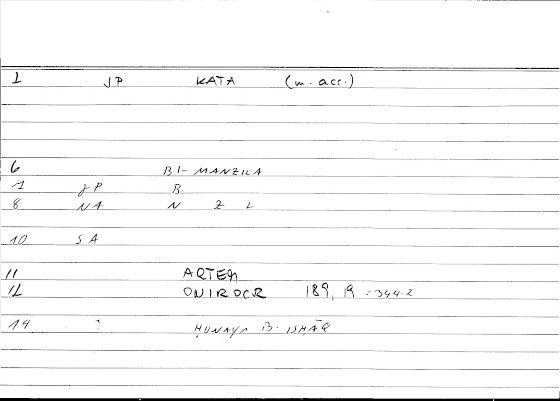 1 JP KATA (m. acc.)
6 BI-MANZILA
1 JP B
8 NA N Z L
10 SA
11 ARTEM
12 ONIROCR 189, 19 = 344.2
14 ḤUNAYN B. ISḤĀQ